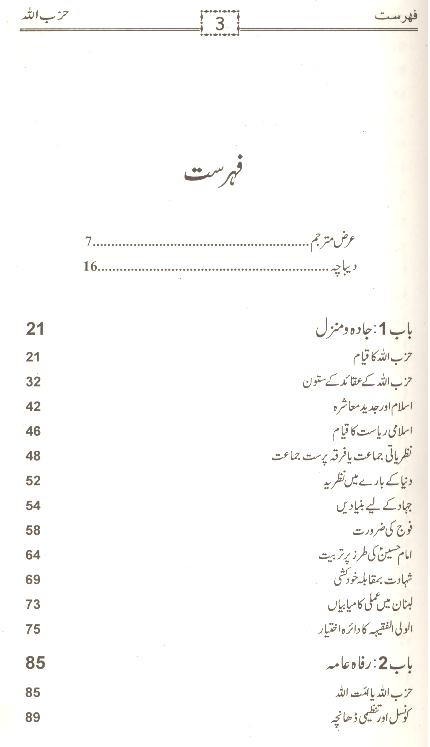 فہرست 3 حزب اللہ
فہرست
عرض مترجم......................................................7
دیباچہ..........................................................16
باب 1: جادہ و منزل 21
حزب اللہ کا قیام 21
حزب اللہ کے عقائد کے ستون 32
اسلام اور جدید معاشرہ 42
اسلامی ریاست کا قیام 46
نظریاتی جماعت یا فرقہ پرست جماعت 48
دنیا کے بارے میں نظریہ 52
جہاد کے لیے بنیادیں 54
فوج کی ضرورت 58
امام حسینؑ کی طرز پر تربیت 64
شہادت بمقابلہ خودکشی 69
لبنان میں عملی کامیابیاں 73
الولی الفقیہہ کا دائرہ اختیار 75
باب 2: رفاہ عامہ 85
حزب اللہ یا امت اللہ 85
کونسل اور تنظیمی ڈھانچہ 89